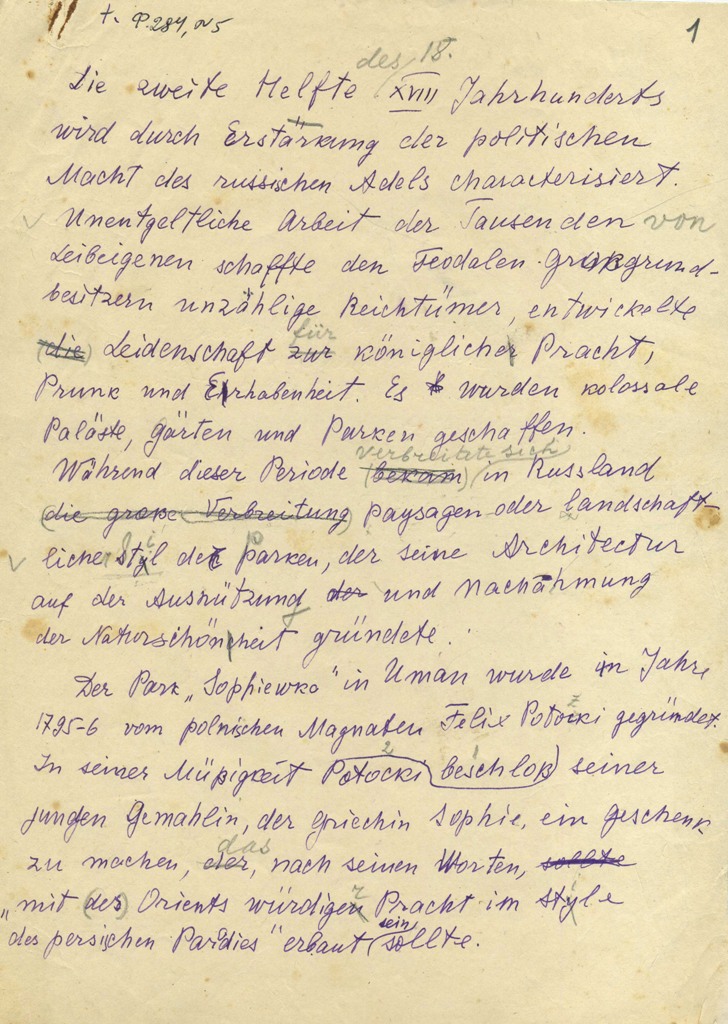 t. Ф. 284, N5
1
des 18.
Die zweite Helfte XVIII Jahrhunderts
wird durch Erstärkung der politischen
Macht des russischen Adels characterisiert.
Unentgeltliche Arbeit der Tausenden von
Leibeigenen schaffte den Feodalen-Großgrund-
besitzern unzählige Reichtümer, entwickelte
für
(die) Leidenschaft zur königlicher Pracht,
Prunk und Erhabenheit. Es wurden kolossale
Paläste, gärten und Parken geschaffen.
verbreitete sich
Während dieser Periode (bekam) in Russland
(die große Verbreitung) paysagen oder landschaft-
licher Styl der Parken, der seine Architectur
auf der Ausnützung der und Nachahmung
der Naturschönheit gründete.
Der Park „Sophiewka" in Uman wurde im Jahre
1795-6 vom polnischen Magnaten Felix Potozki gegründet.
2
In seiner Müßigkeit Potocki beschloß seiner
jungen Gemahlin, der griechin Sophie, ein geschenk
das
zu machen, der, nach seinen Worten, sollte
„mit (des) Orients würdiger Pracht im Style
sein
des persischen Paradies" erbaut sollte.